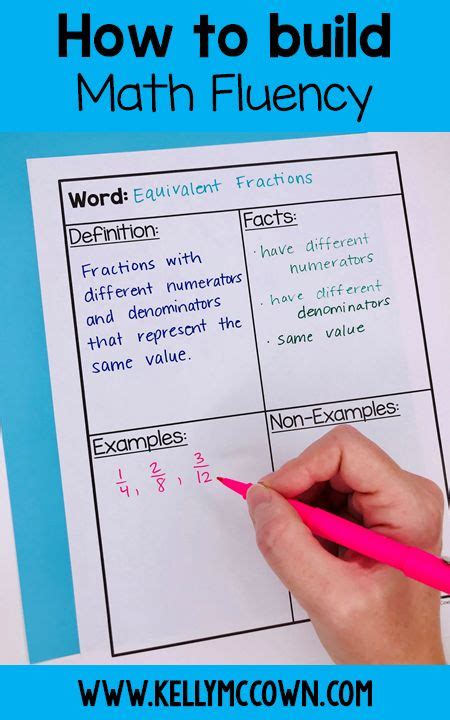 How to build
Math Fluency
Word: Equivalent Fractions
Definition:
Fractions with
different numerators
and denominators
that represent the
same value.
Facts:
· have different
numerators
· have different
denominators
· same value
Examples:
1/4, 2/8, 3/12
Non-Examples:
WWW.KELLYMCCOWN.COM